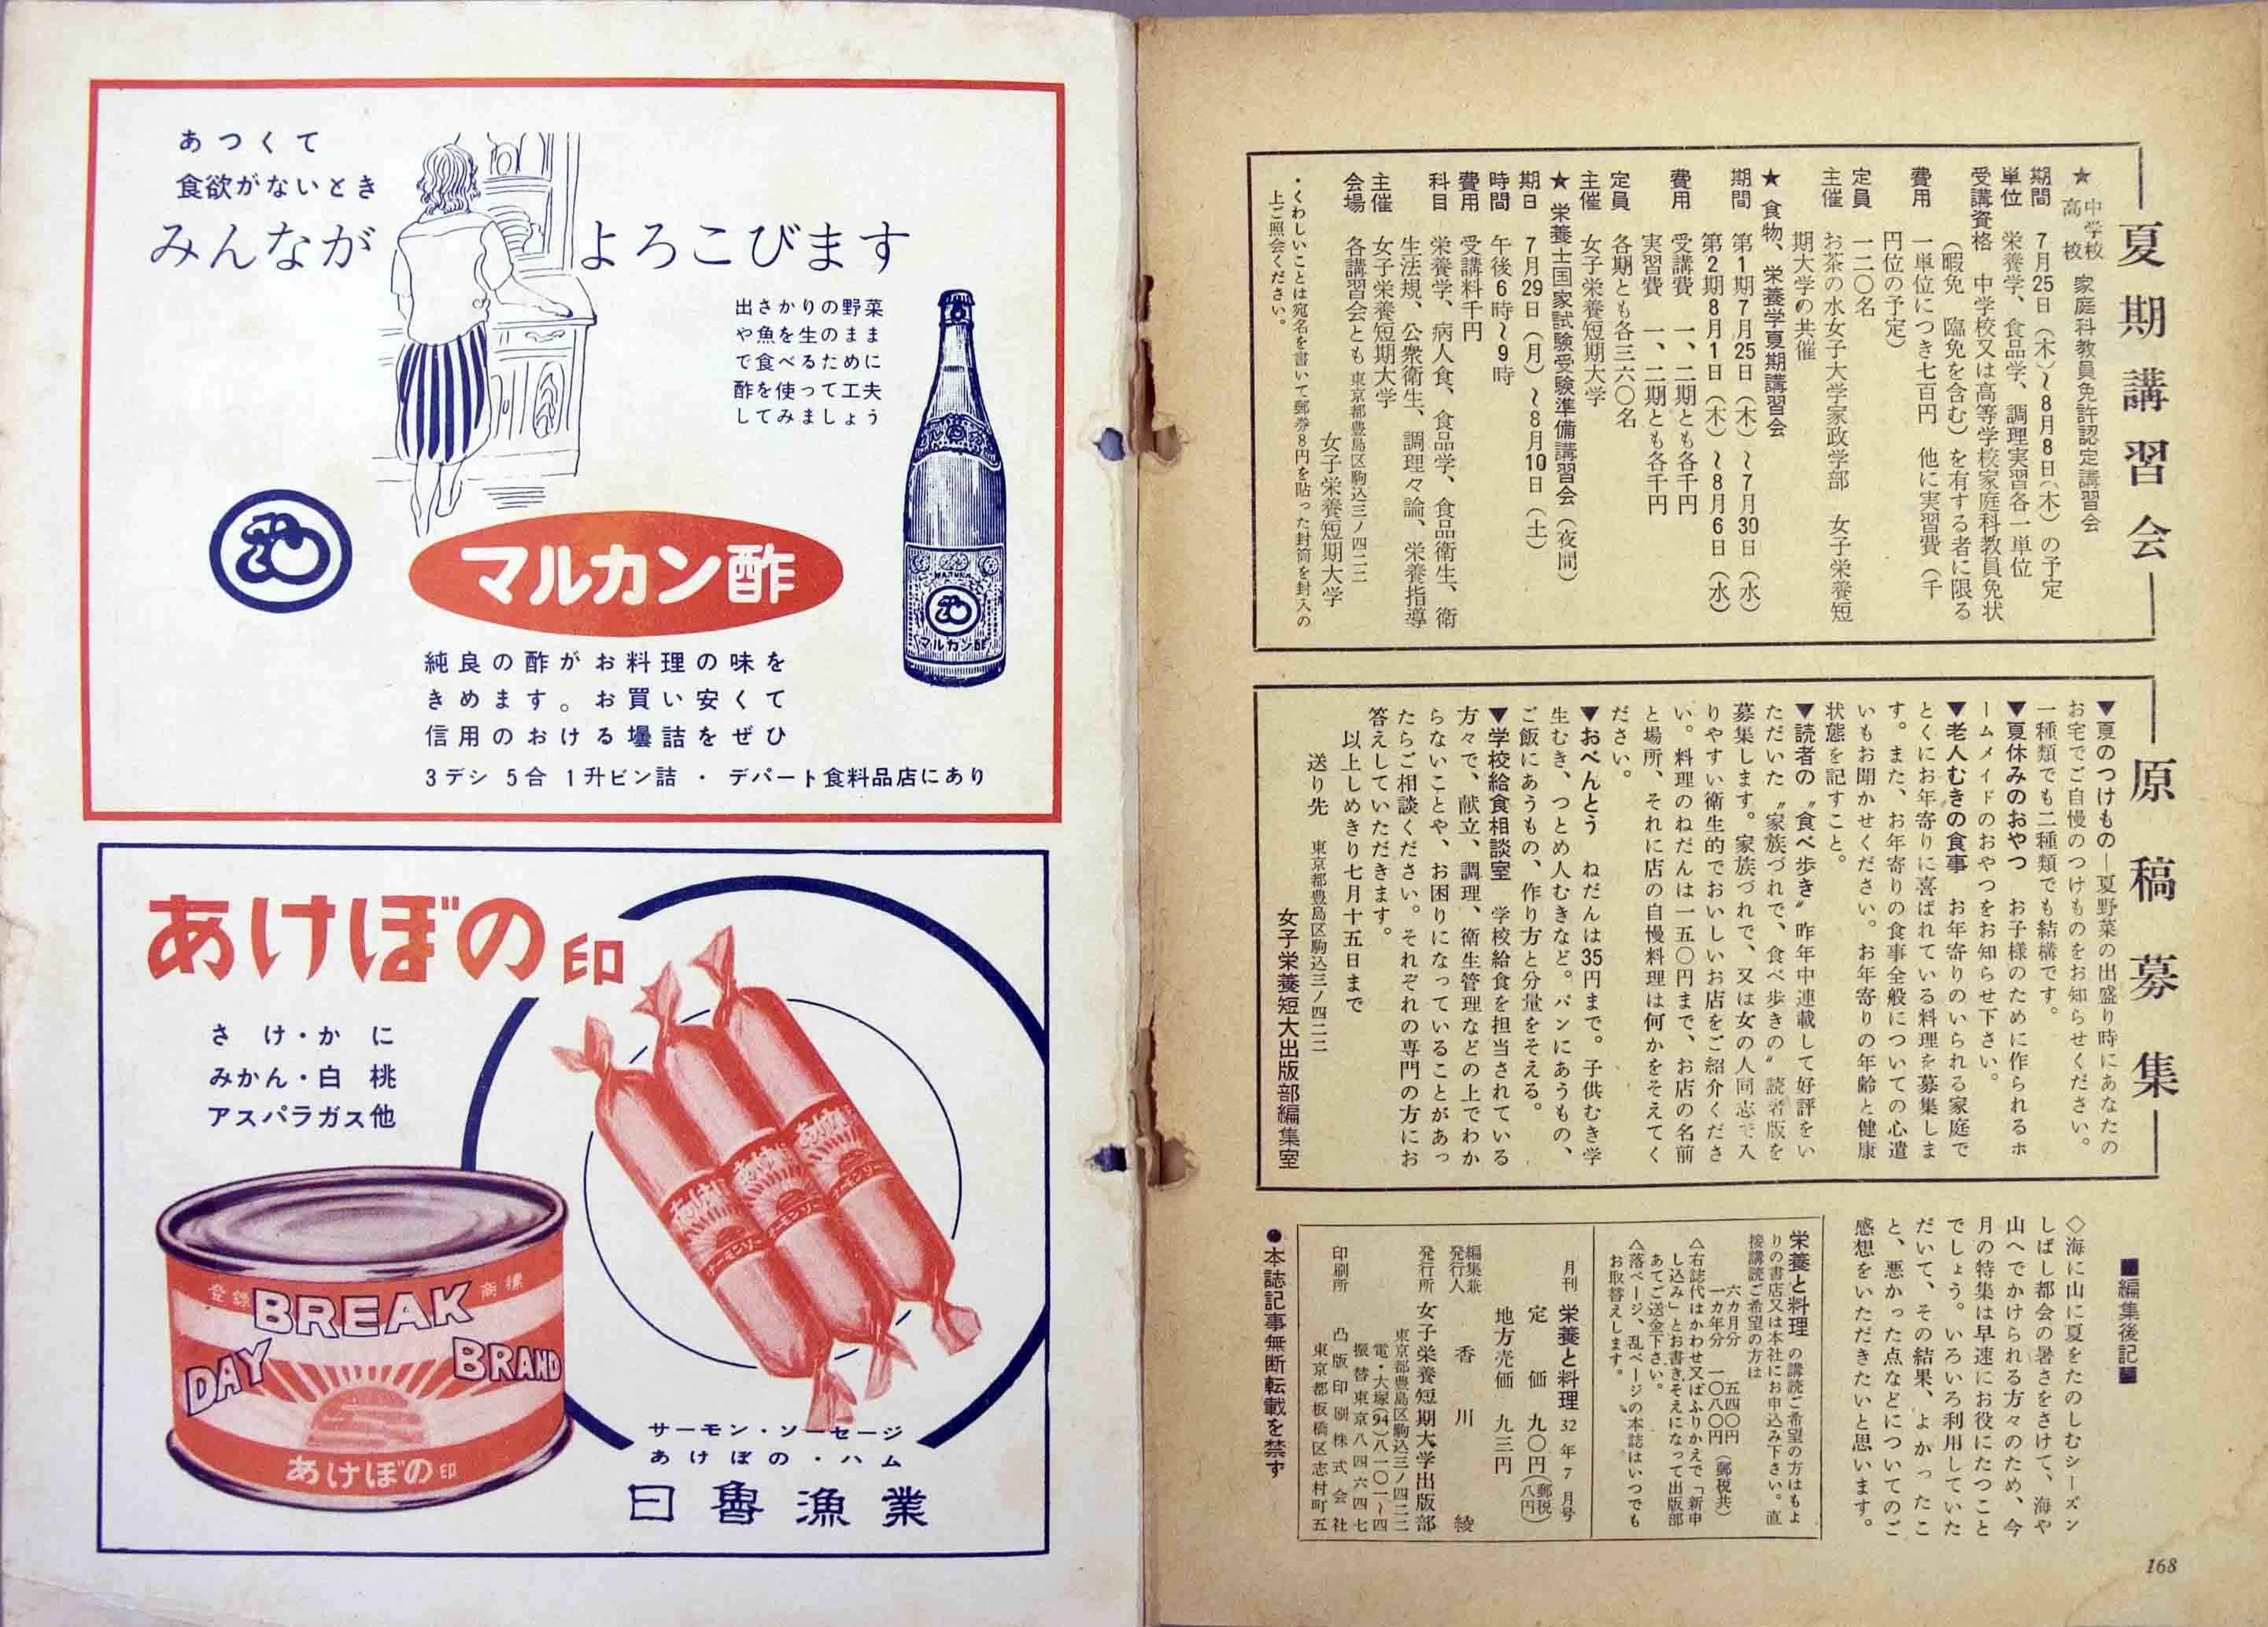 ―夏期講習会―
★中学校 高校 家庭科教員免許認定講習会
期間 7月25日（木）～8月8日（木）の予定
単位 栄養学、食品学、調理実習各一単位
受講資格 中学校又は高等学校家庭科教員免状
（暇免 臨免を含む）を有する者に限る
費用 一単位につき七百円 他に実習費（千
円位の予定）
定員 一二〇名
主催 お茶の水女子大学家政学部 女子栄養短
期大学の共催
★食物、栄養学夏期講習会
期間 第1期7月25日（木）～7月30日（水）
第2期8月1日（木）～8月6日（水）
費用 受講費 一、二期とも各千円
実習費 一、二期とも各千円
定員 各期とも各三六〇名
主催 女子栄養短期大学
★栄養士国家試験受験準備講習会（夜間）
期日 7月29日（月）～8月10日（土）
時間 午後6時～9時
費用 受講料千円
科目 栄養学、病人食、食品学、食品衛生、衛
生法規、公衆衛生、調理々論、栄養指導
主催 女子栄養短期大学
会場 各講習会とも 東京都豊島区駒込三ノ四二二
女子栄養短期大学
・くわしいことは宛名を書いて郵券8円を貼った封筒を封入の
上ご照会ください。
―原稿募集―
▼夏のつけもの―夏野菜の出盛り時にあなたの
お宅でご自慢のつけものをお知らせください。
一種類でも二種類でも結構です。
▼夏休みのおやつ お子様のために作られるホ
ームメイドのおやつをお知らせ下さい。
▼老人むきの食事 お年寄りのいられる家庭で
とくにお年寄りに喜ばれている料理を募集しま
す。また、お年寄りの食事全般についての心遣
いもお聞かせください。お年寄りの年齢と健康
状態を記すこと。
▼読者の〝食べ歩き〟昨年中連載して好評をい
ただいた〝家族づれで、食べ歩きの〟読者版を
募集します。家族づれで、又は女の人同志で入
りやすい衛生的でおいしいお店をご紹介くださ
い。料理のねだんは一五〇円まで、お店の名前
と場所、それに店の自慢料理は何かをそえてく
ださい。
▼おべんとう ねだんは35円まで。子供むき学
生むき、つとめ人むきなど。パンにあうもの、
ご飯にあうもの、作り方と分量をそえる。
▼学校給食相談室 学校給食を担当されている
方々で、献立、調理、衛生管理などの上でわか
らないことや、お困りになっていることがあっ
たらご相談ください。それぞれの専門の方にお
答えしていただきます。
以上しめきり七月十五日まで
送り先 東京都豊島区駒込三ノ四二二
女子栄養短大出版部編集室
■編集後記■
◇海に山に夏をたのしむシーズン
しばし都会の暑さをさけて、海や
山へでかけられる方々のため、今
月の特集は早速にお役にたつこと
でしょう。いろいろ利用していた
だいて、その結果、よかったこ
と、悪かった点などについてのご
感想をいただきたいと思います。
栄養と料理の講読ご希望の方はもよ
りの書店又は本社にお申込み下さい。直
接講読ご希望の方は
六カ月分 五四〇円
一カ年分 一〇八〇円（郵税共）
△右誌代はかわせ又はふりかえで「新申
し込み」とお書きそえになって出版部
あてご送金下さい。
△落ページ、乱ページの本誌はいつでも
お取替えします。
月刊 栄養と料理 32年7月号
定価 九〇円（郵税八円）
地方売価 九三円
編集兼発行人 香川綾
発行所 女子栄養短期大学出版部
東京都豊島区駒込三ノ四二二
電・大塚（94）八一〇一～四
振替東京八四六四七
印刷所 凸版印刷株式会社
東京都板橋区志村町五
●本誌記事無断転載を禁ず
168
あつくて
食欲がないとき
みんなが よろこびます
出さかりの野菜
や魚を生のまま
で食べるために
酢を使って工夫
してみましょう
マルカン酢
マルカン酢
純良の酢がお料理の味を
きめます。お買い安くて
信用のおける壜詰をぜひ
3デシ 5合 1升ビン詰 ・ デパート食料品店にあり
あけぼの印
さけ・かに
みかん・白桃
アスパラガス他
登録 商標
DAY BREAK BRAND
あけぼの印
サーモン・ソーセージ
あけぼの・ハム
日魯漁業